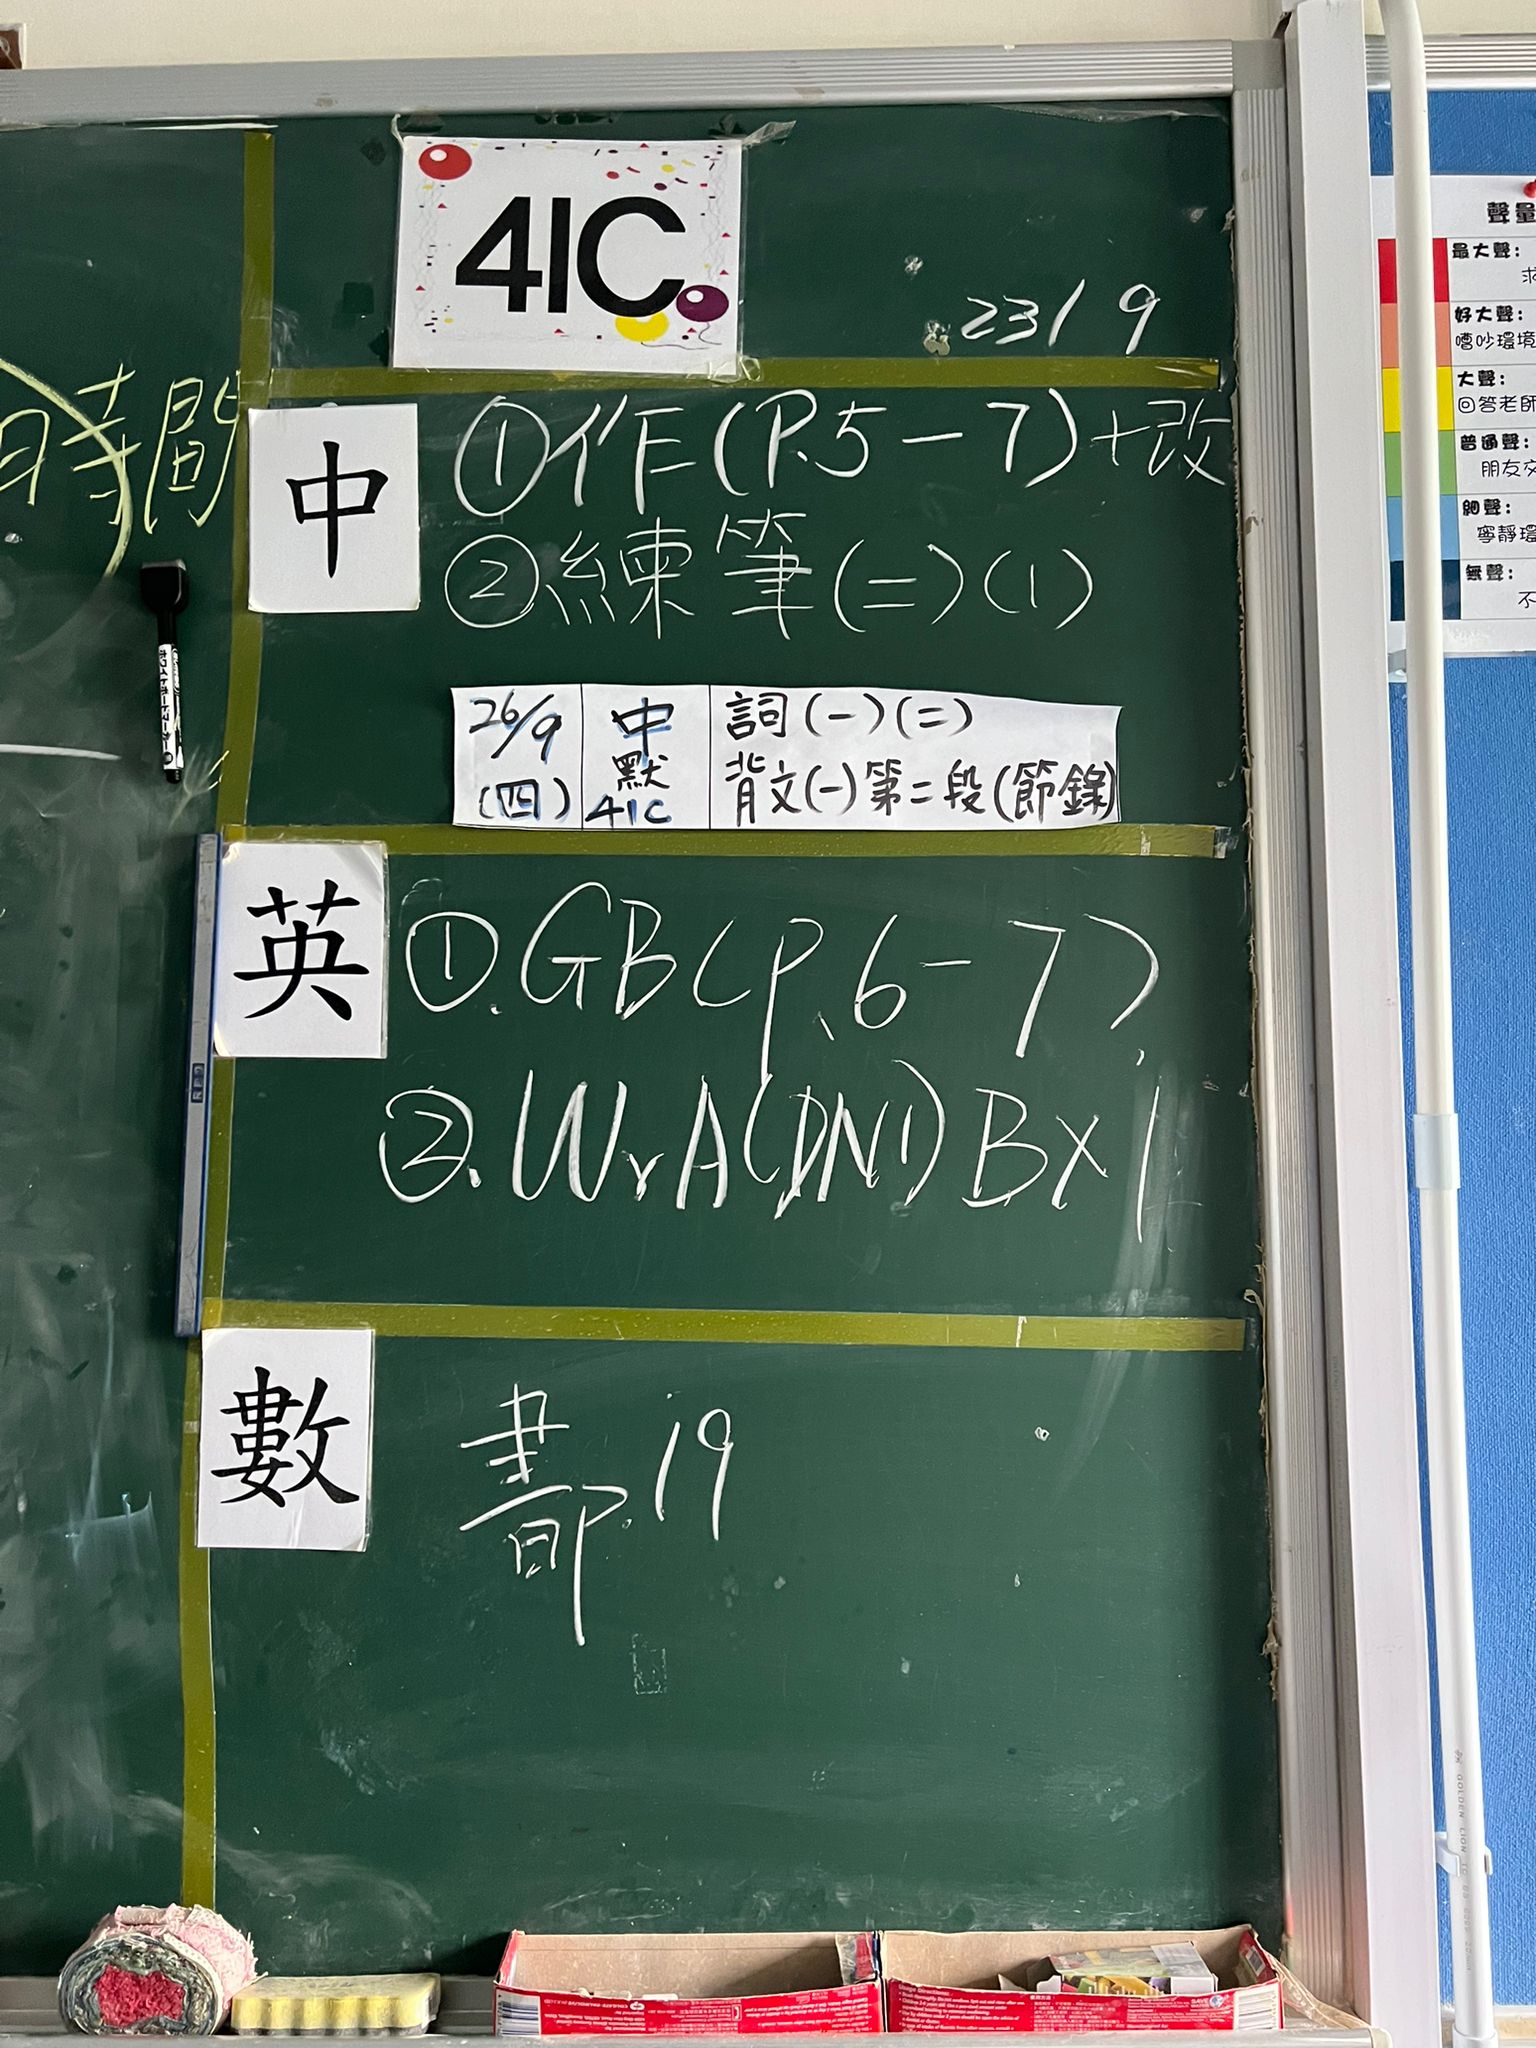 41C
23/9
時間
中
①作(P.5-7)+改
②練筆(二)(1)
26/9
(四)
中
默
41C
詞(一)(二)
背文(一)第二段(節錄)
英
①.GB(P.6-7)
②.WrA(DN1)BX1
數
書P.19
聲量
最大聲:
好大聲:
嘈吵環境
大聲:
回答老師
普通聲:
朋友交
細聲:
寧靜環
無聲:
不
ホワイトボードマーカー
GOLDEN LION